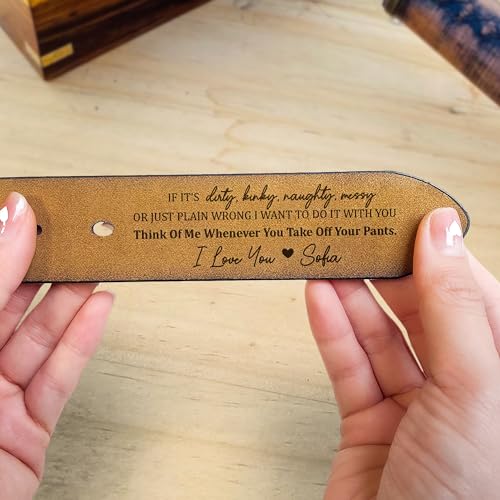 IF IT'S dirty, kinky, naughty, messy
OR JUST PLAIN WRONG I WANT TO DO IT WITH YOU
Think Of Me Whenever You Take Off Your Pants.
I Love You ♥ Sofia